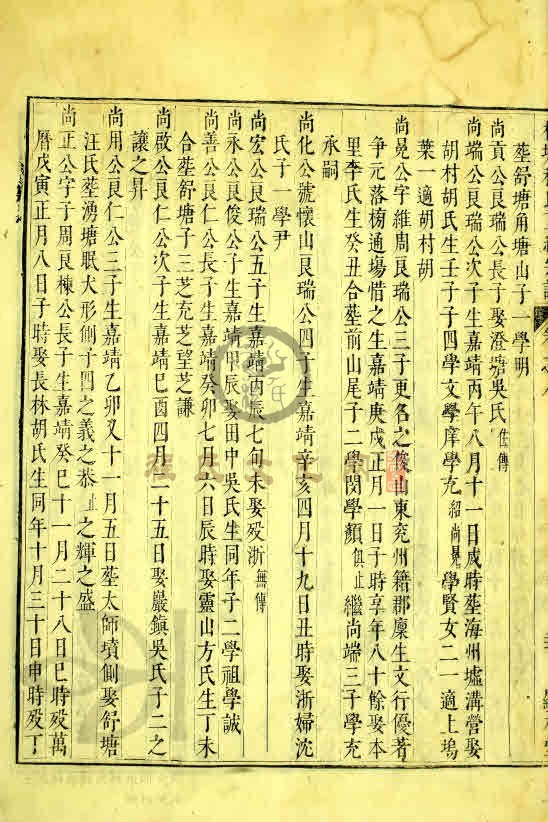 塟舒塘角塘山子一學明
尚貢公良瑞公長子娶澄塘吳氏仕傳
尚端公良瑞公次子生嘉靖丙午八月十一日戌時塟海州墟溝營娶
胡村胡氏生壬子子四學文學庠學充紹尚晃學賢女二一適上塢
葉一適胡村胡
尚晃公字維周良瑞公三子更名之俊山東兖州籍郡廩生文行優著
争元落榜通塲惜之生嘉靖庚戌正月一日子時享年八十餘娶本
里李氏生癸丑合塟前山尾子二學閔學顏俱止繼尚端三子學充
承嗣
尚化公號懷山良瑞公四子生嘉靖辛亥四月十九日丑時娶浙婦沈
氏子一學尹
尚宏公良瑞公五子生嘉靖丙辰七旬未娶殁浙無傳
尚永公良俊公子生嘉靖甲辰娶田中吳氏生同年子二學祖學誠
尚善公良仁公長子生嘉靖癸卯七月六日辰時娶靈山方氏生丁未
合塟舒塘子三芝充芝望芝謙
尚啟公良仁公次子生嘉靖巳酉四月二十五日娶巖鎮吳氏子二之
讓之昇
尚用公良仁公三子生嘉靖乙卯又十一月五日塟太師墳側娶舒塘
汪氏塟湧塘眠犬形側子四之義之恭止之輝之盛
尚正公字子周良棟公長子生嘉靖癸巳十一月二十八日巳時殁萬
曆戊寅正月八日子時娶長林胡氏生同年十月三十日申時殁丁